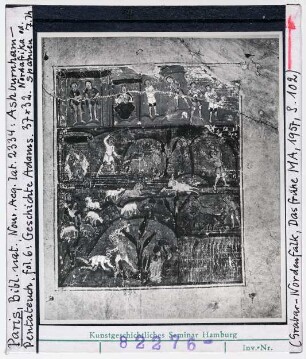 Paris, Bibl. nat., Nouv. Acq. lat. 2334, Ashburnham-
Pentateuch, fol. 6: Geschichte Adams. 37x32
Nordafrika od.
Spanien 7. Jh
Kunstgeschichtliches Seminar Hamburg
82276-
Inv.-Nr.
(Grabar-Nordenfalk, Das frühe MA, 1957, S. 102)